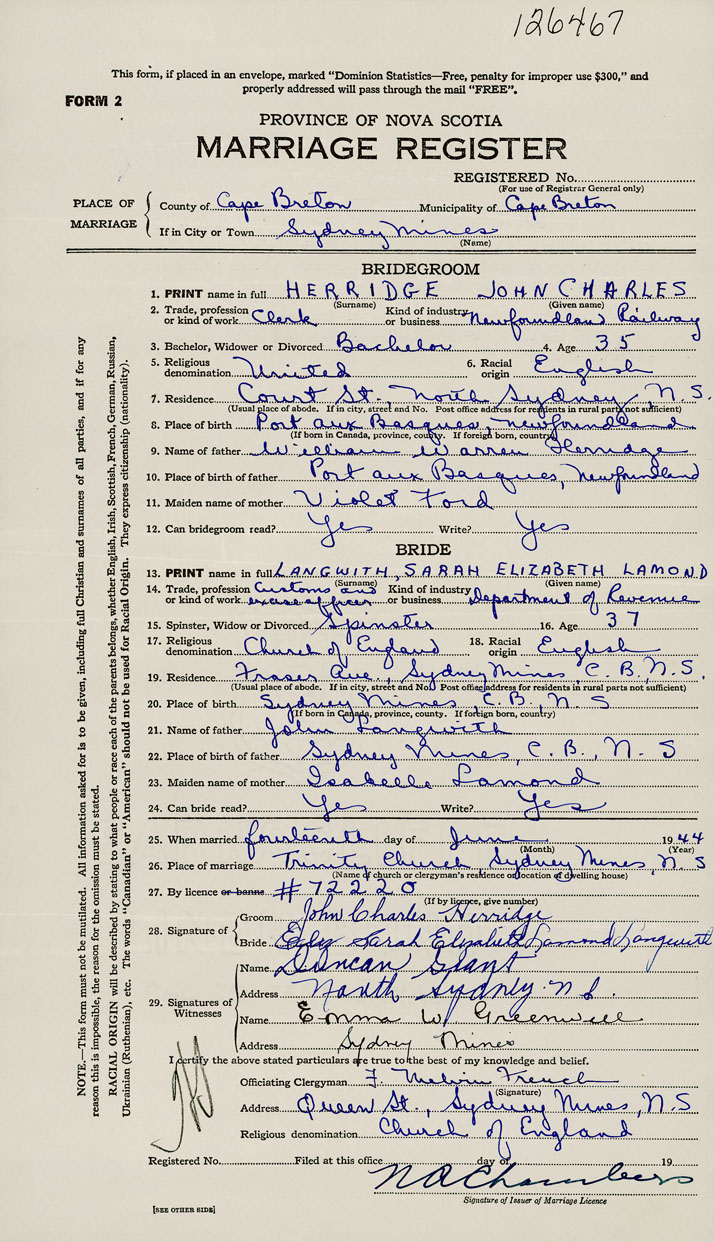 126467
This form, if placed in an envelope, marked "Dominion Statistics—Free, penalty for improper use $300," and
properly addressed will pass through the mail "FREE".
FORM 2
PROVINCE OF NOVA SCOTIA
MARRIAGE REGISTER
REGISTERED No.
(For use of Registrar General only)
PLACE OF MARRIAGE
County of Cape Breton Municipality of Cape Breton
If in City or Town Sydney Mines
(Name)
BRIDEGROOM
1. PRINT name in full HERRIDGE JOHN CHARLES
(Surname) (Given name)
2. Trade, profession or kind of work Clerk Kind of industry or business Newfoundland Railway
3. Bachelor, Widower or Divorced Bachelor 4. Age 35
5. Religious denomination United 6. Racial origin English
7. Residence Court St., North Sydney, N.S.
(Usual place of abode. If in city, street and No. Post office address for residents in rural parts not sufficient)
8. Place of birth Port aux Basques, Newfoundland
(If born in Canada, province, county. If foreign born, country)
9. Name of father William Warren Herridge
10. Place of birth of father Port aux Basques, Newfoundland
11. Maiden name of mother Violet Ford
12. Can bridegroom read? Yes Write? Yes
BRIDE
13. PRINT name in full LANGWITH, SARAH ELIZABETH LAMOND
(Surname) (Given name)
14. Trade, profession or kind of work Customs and excise officer Kind of industry or business Department of Revenue
15. Spinster, Widow or Divorced Spinster 16. Age 37
17. Religious denomination Church of England 18. Racial origin English
19. Residence Fraser Ave., Sydney Mines, C.B., N.S.
(Usual place of abode. If in city, street and No. Post office address for residents in rural parts not sufficient)
20. Place of birth Sydney Mines, C.B., N.S
(If born in Canada, province, county. If foreign born, country)
21. Name of father John Langwith
22. Place of birth of father Sydney Mines, C.B., N.S
23. Maiden name of mother Isabelle Lamond
24. Can bride read? Yes Write? Yes
25. When married fourteenth day of June 1944
(Month) (Year)
26. Place of marriage Trinity Church, Sydney Mines, N.S
(Name of church or clergyman's residence or location of dwelling house)
27. By licence or banns #72220
(If by licence, give number)
28. Signature of
Groom John Charles Herridge
Bride Sarah Elizabeth Lamond Langwith
29. Signatures of Witnesses
Name Duncan Grant
Address North Sydney N.S.
Name Emma W Greenwell
Address Sydney Mines
I certify the above stated particulars are true to the best of my knowledge and belief.
Officiating Clergyman F. Melvin French
(Signature)
Address Queen St., Sydney Mines, N.S
Religious denomination Church of England
Registered No. Filed at this office day of 19
N A Chambers
Signature of Issuer of Marriage Licence
[SEE OTHER SIDE]
NOTE.—This form must not be mutilated. All information asked for is to be given, including full Christian and surnames of all parties, and if for any
reason this is impossible, the reason for the omission must be stated.
RACIAL ORIGIN will be described by stating to what people or race each of the parents belongs, whether English, Irish, Scottish, French, German, Russian,
Ukrainian (Ruthenian), etc. The words "Canadian" or "American" should not be used for Racial Origin. They express citizenship (nationality).